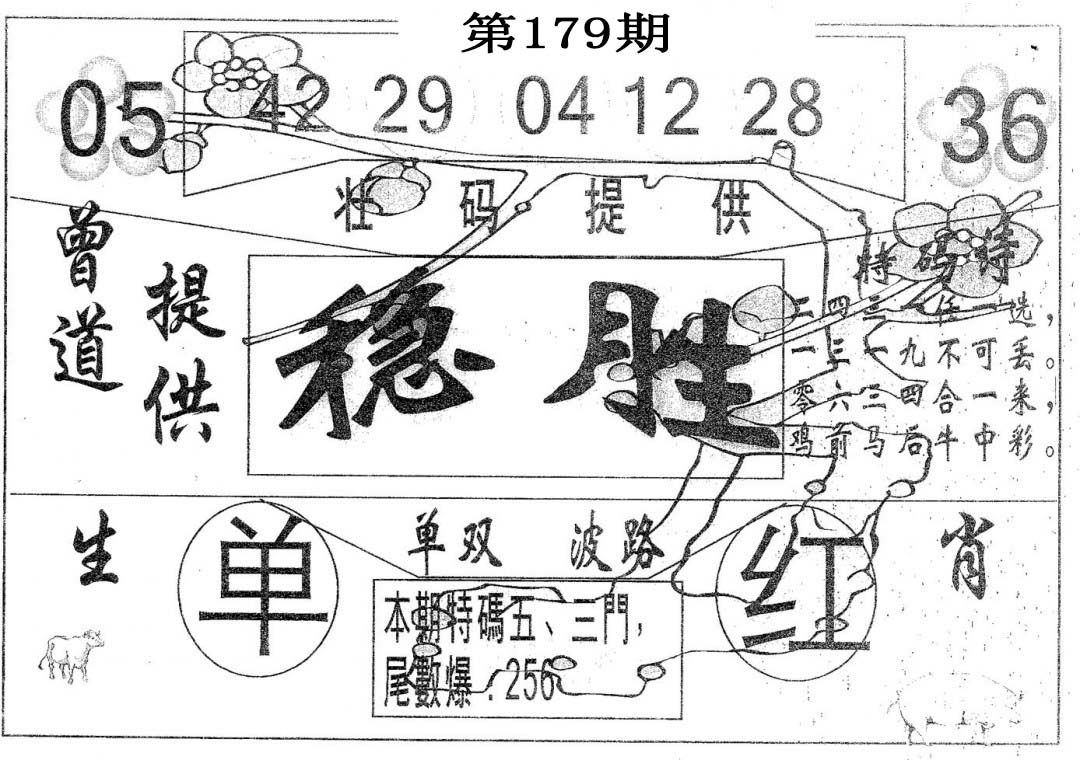 第179期
05 42 29 04 12 28 36
壮码提供
曾道
提供
稳胜
特码诗
二四三一任一选，
一三一九不可丢。
零六三四合一来，
鸡前马后牛中彩。
生肖
单
单双 波路
红
本期特碼五、三門，
尾數爆：256